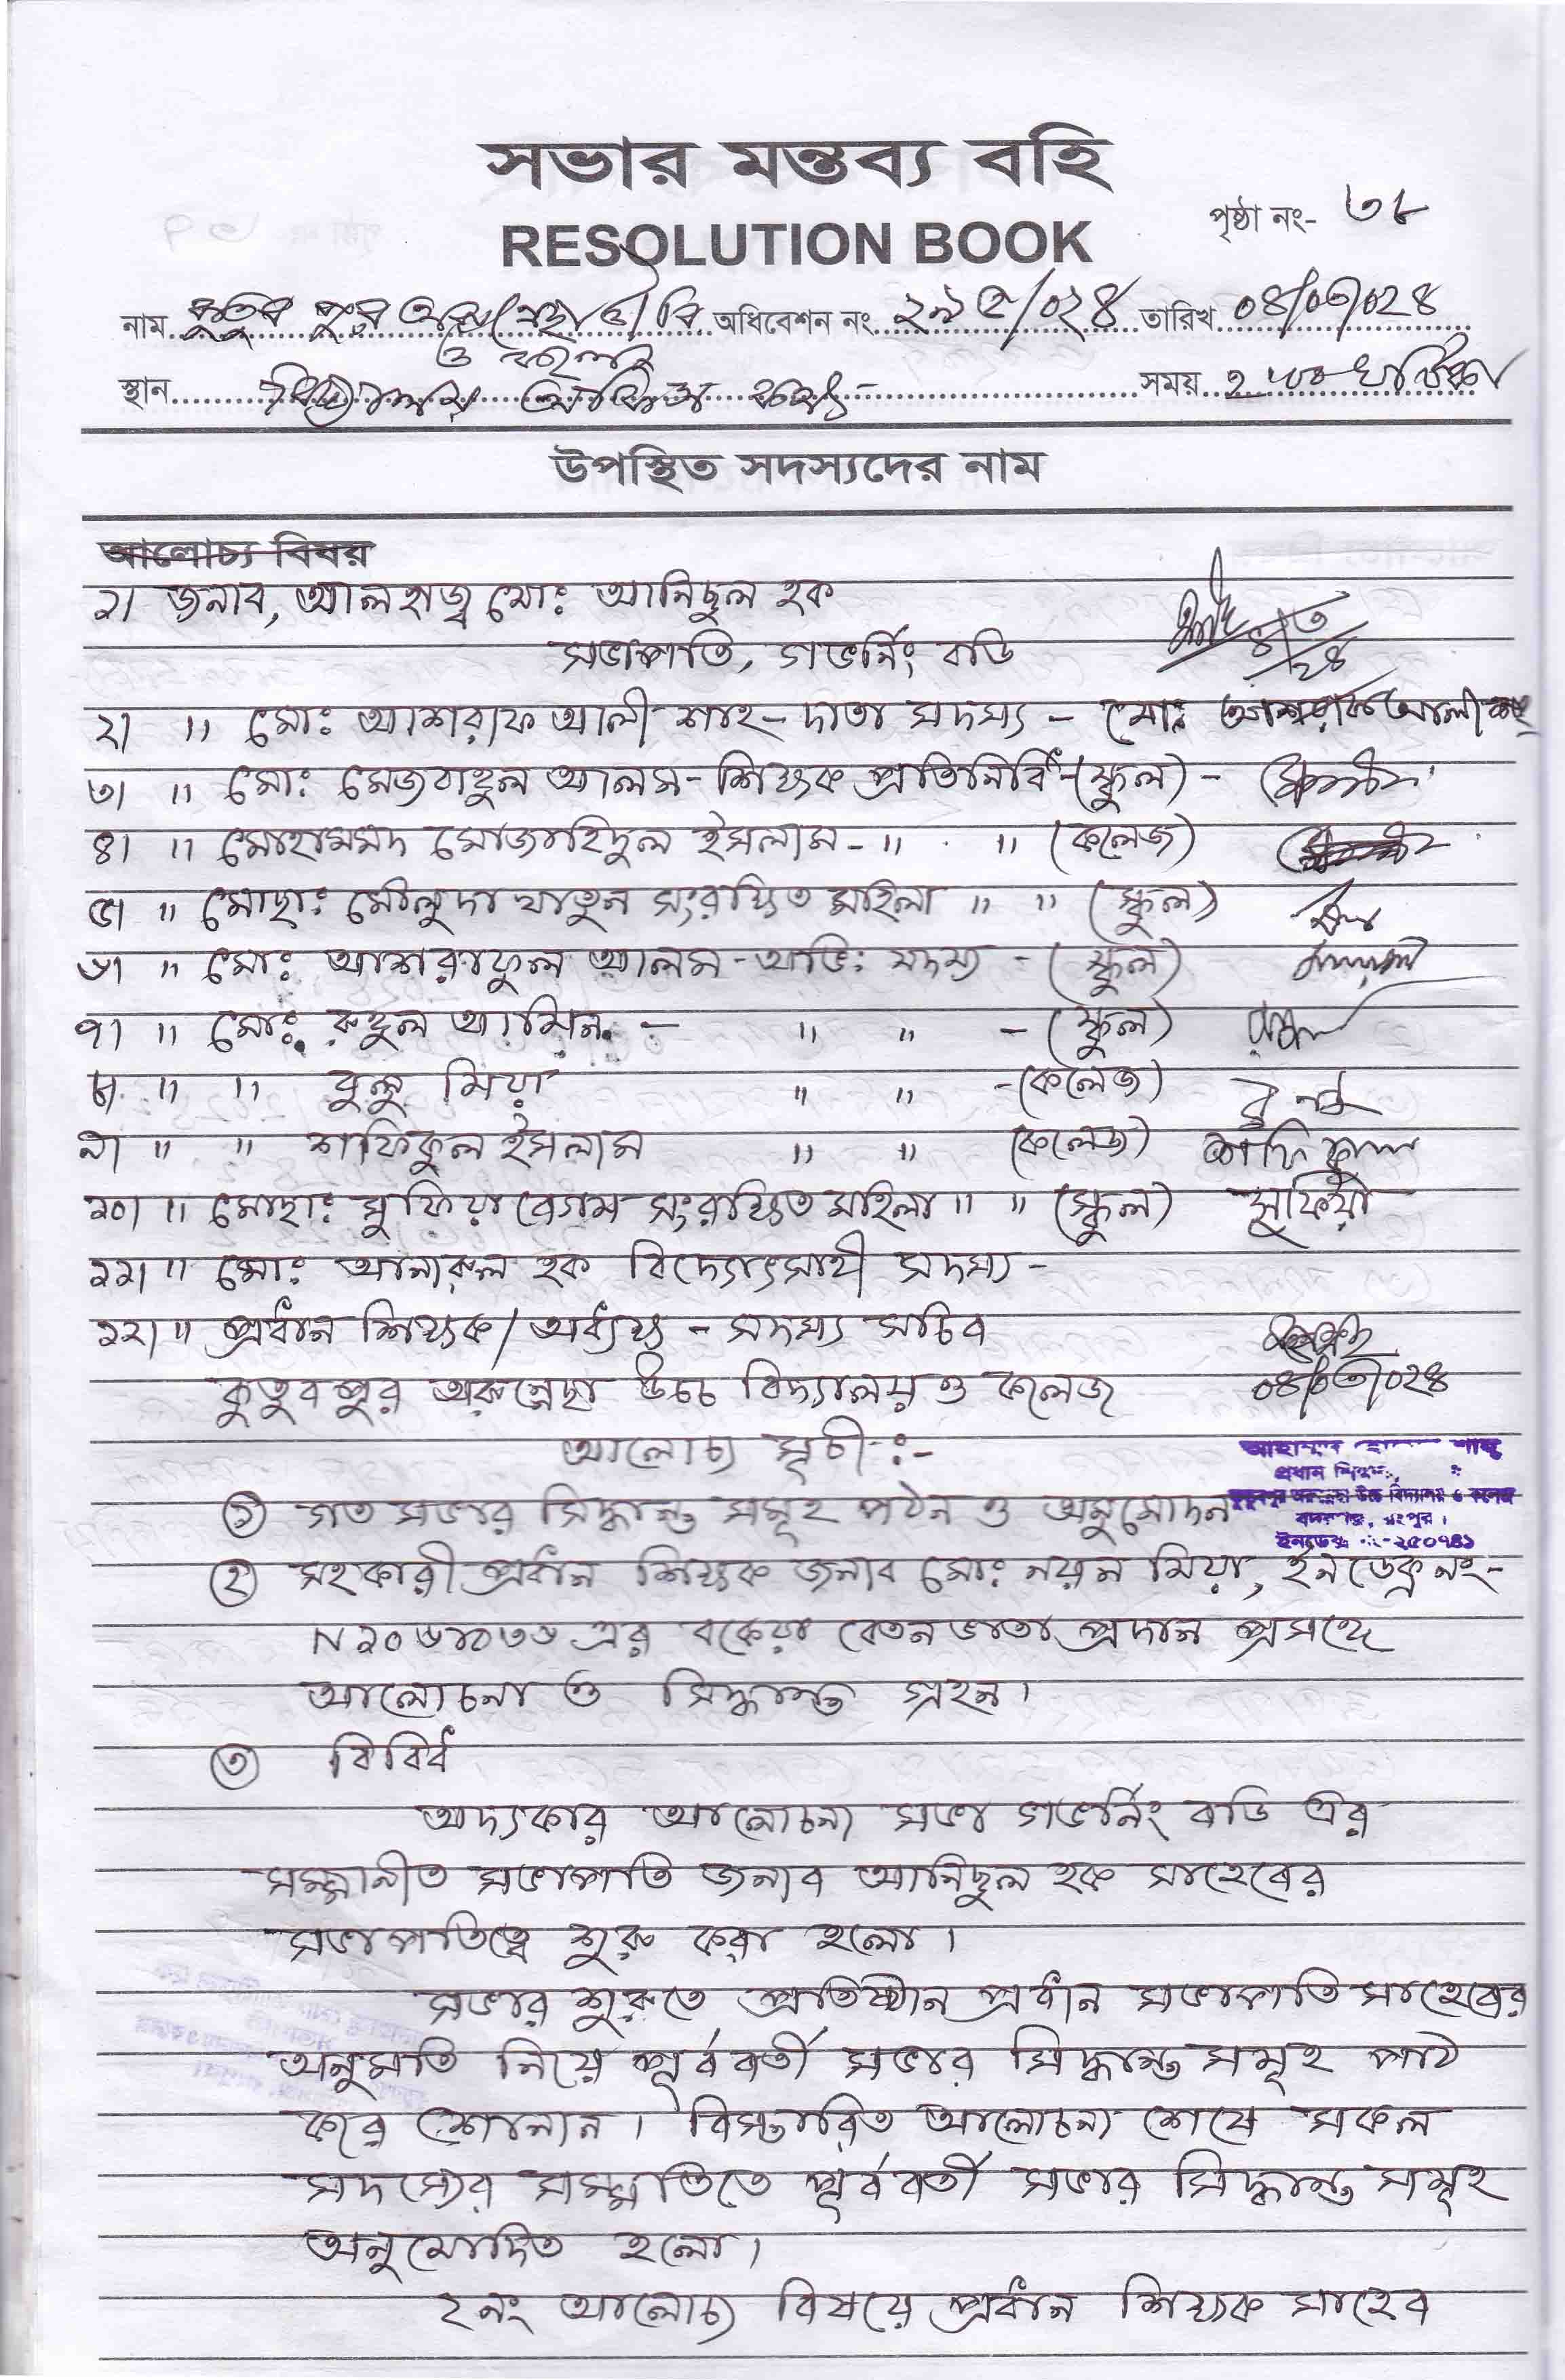 সভার মন্তব্য বহি
RESOLUTION BOOK
পৃষ্ঠা নং- ৩৮
নাম কুতুব পুর অরুন্নেছা উ/বি অধিবেশন নং ২৯৫/০২৪ তারিখ ০৪/০৩/০২৪
ও কলেজ
স্থান বিদ্যালয় অফিস কক্ষ- সময় ২.০০ ঘটিকা
উপস্থিত সদস্যদের নাম
আলোচ্য বিষয়
১। জনাব, আলহাজ্ব মোঃ আনিছুল হক
সভাপতি, গভর্নিং বডি
৪/৩/২৪
২। " মোঃ আশরাফ আলী শাহ- দাতা সদস্য - মোঃ আশরাফ আলী শাহ্
৩। " মোঃ মেজবাহুল আলম- শিক্ষক প্রতিনিধি-(স্কুল) -
৪। " মোহাম্মদ মোজাহিদুল ইসলাম- " " (কলেজ)
৫। " মোছাঃ মৌলুদা খাতুন সংরক্ষিত মহিলা " " (স্কুল)
৬। " মোঃ আশরাফুল আলম -অভিঃ সদস্য - (স্কুল)
৭। " মোঃ রুহুল আমিন - " " - (স্কুল)
৮। " " বুলু মিয়া " " -(কলেজ) বুলু
৯। " " শফিকুল ইসলাম " " (কলেজ) শফিকুল
১০। " মোছাঃ সুফিয়া বেগম সংরক্ষিত মহিলা " " (স্কুল) সুফিয়া
১১। " মোঃ আনারুল হক বিদ্যোৎসাহী সদস্য-
১২। " প্রধান শিক্ষক/ অধ্যক্ষ - সদস্য সচিব
কুতুবপুর অরুন্নেছা উচ্চ বিদ্যালয় ও কলেজ ০৪/০৩/০২৪
আলোচ্য সূচী :-
প্রধান শিক্ষক
কুতুবপুর অরুন্নেছা উচ্চ বিদ্যালয় ও কলেজ
বদরগঞ্জ, রংপুর।
ইনডেক্স -২৫০৭৪১
① গত সভার সিদ্ধান্ত সমূহ পঠন ও অনুমোদন
② সহকারী প্রধান শিক্ষক জনাব মোঃ নয়ন মিয়া, ইনডেক্স নং-
N ২০৬১০৩৩ এর বকেয়া বেতন ভাতা প্রদান প্রসঙ্গে
আলোচনা ও সিদ্ধান্ত গ্রহন।
③ বিবিধ
অদ্যকার আলোচনা সভা গভর্নিং বডি এর
সম্মানীত সভাপতি জনাব আনিছুল হক সাহেবের
সভাপতিত্বে শুরু করা হলো।
সভার শুরুতে প্রতিষ্ঠান প্রধান সভাপতি সাহেবের
অনুমতি নিয়ে পূর্ববর্তী সভার সিদ্ধান্ত সমূহ পাঠ
করে শোনান। বিস্তারিত আলোচনা শেষে সকল
সদস্যের সম্মতিতে পূর্ববর্তী সভার সিদ্ধান্ত সমূহ
অনুমোদিত হলো।
২নং আলোচ্য বিষয়ে প্রধান শিক্ষক সাহেব